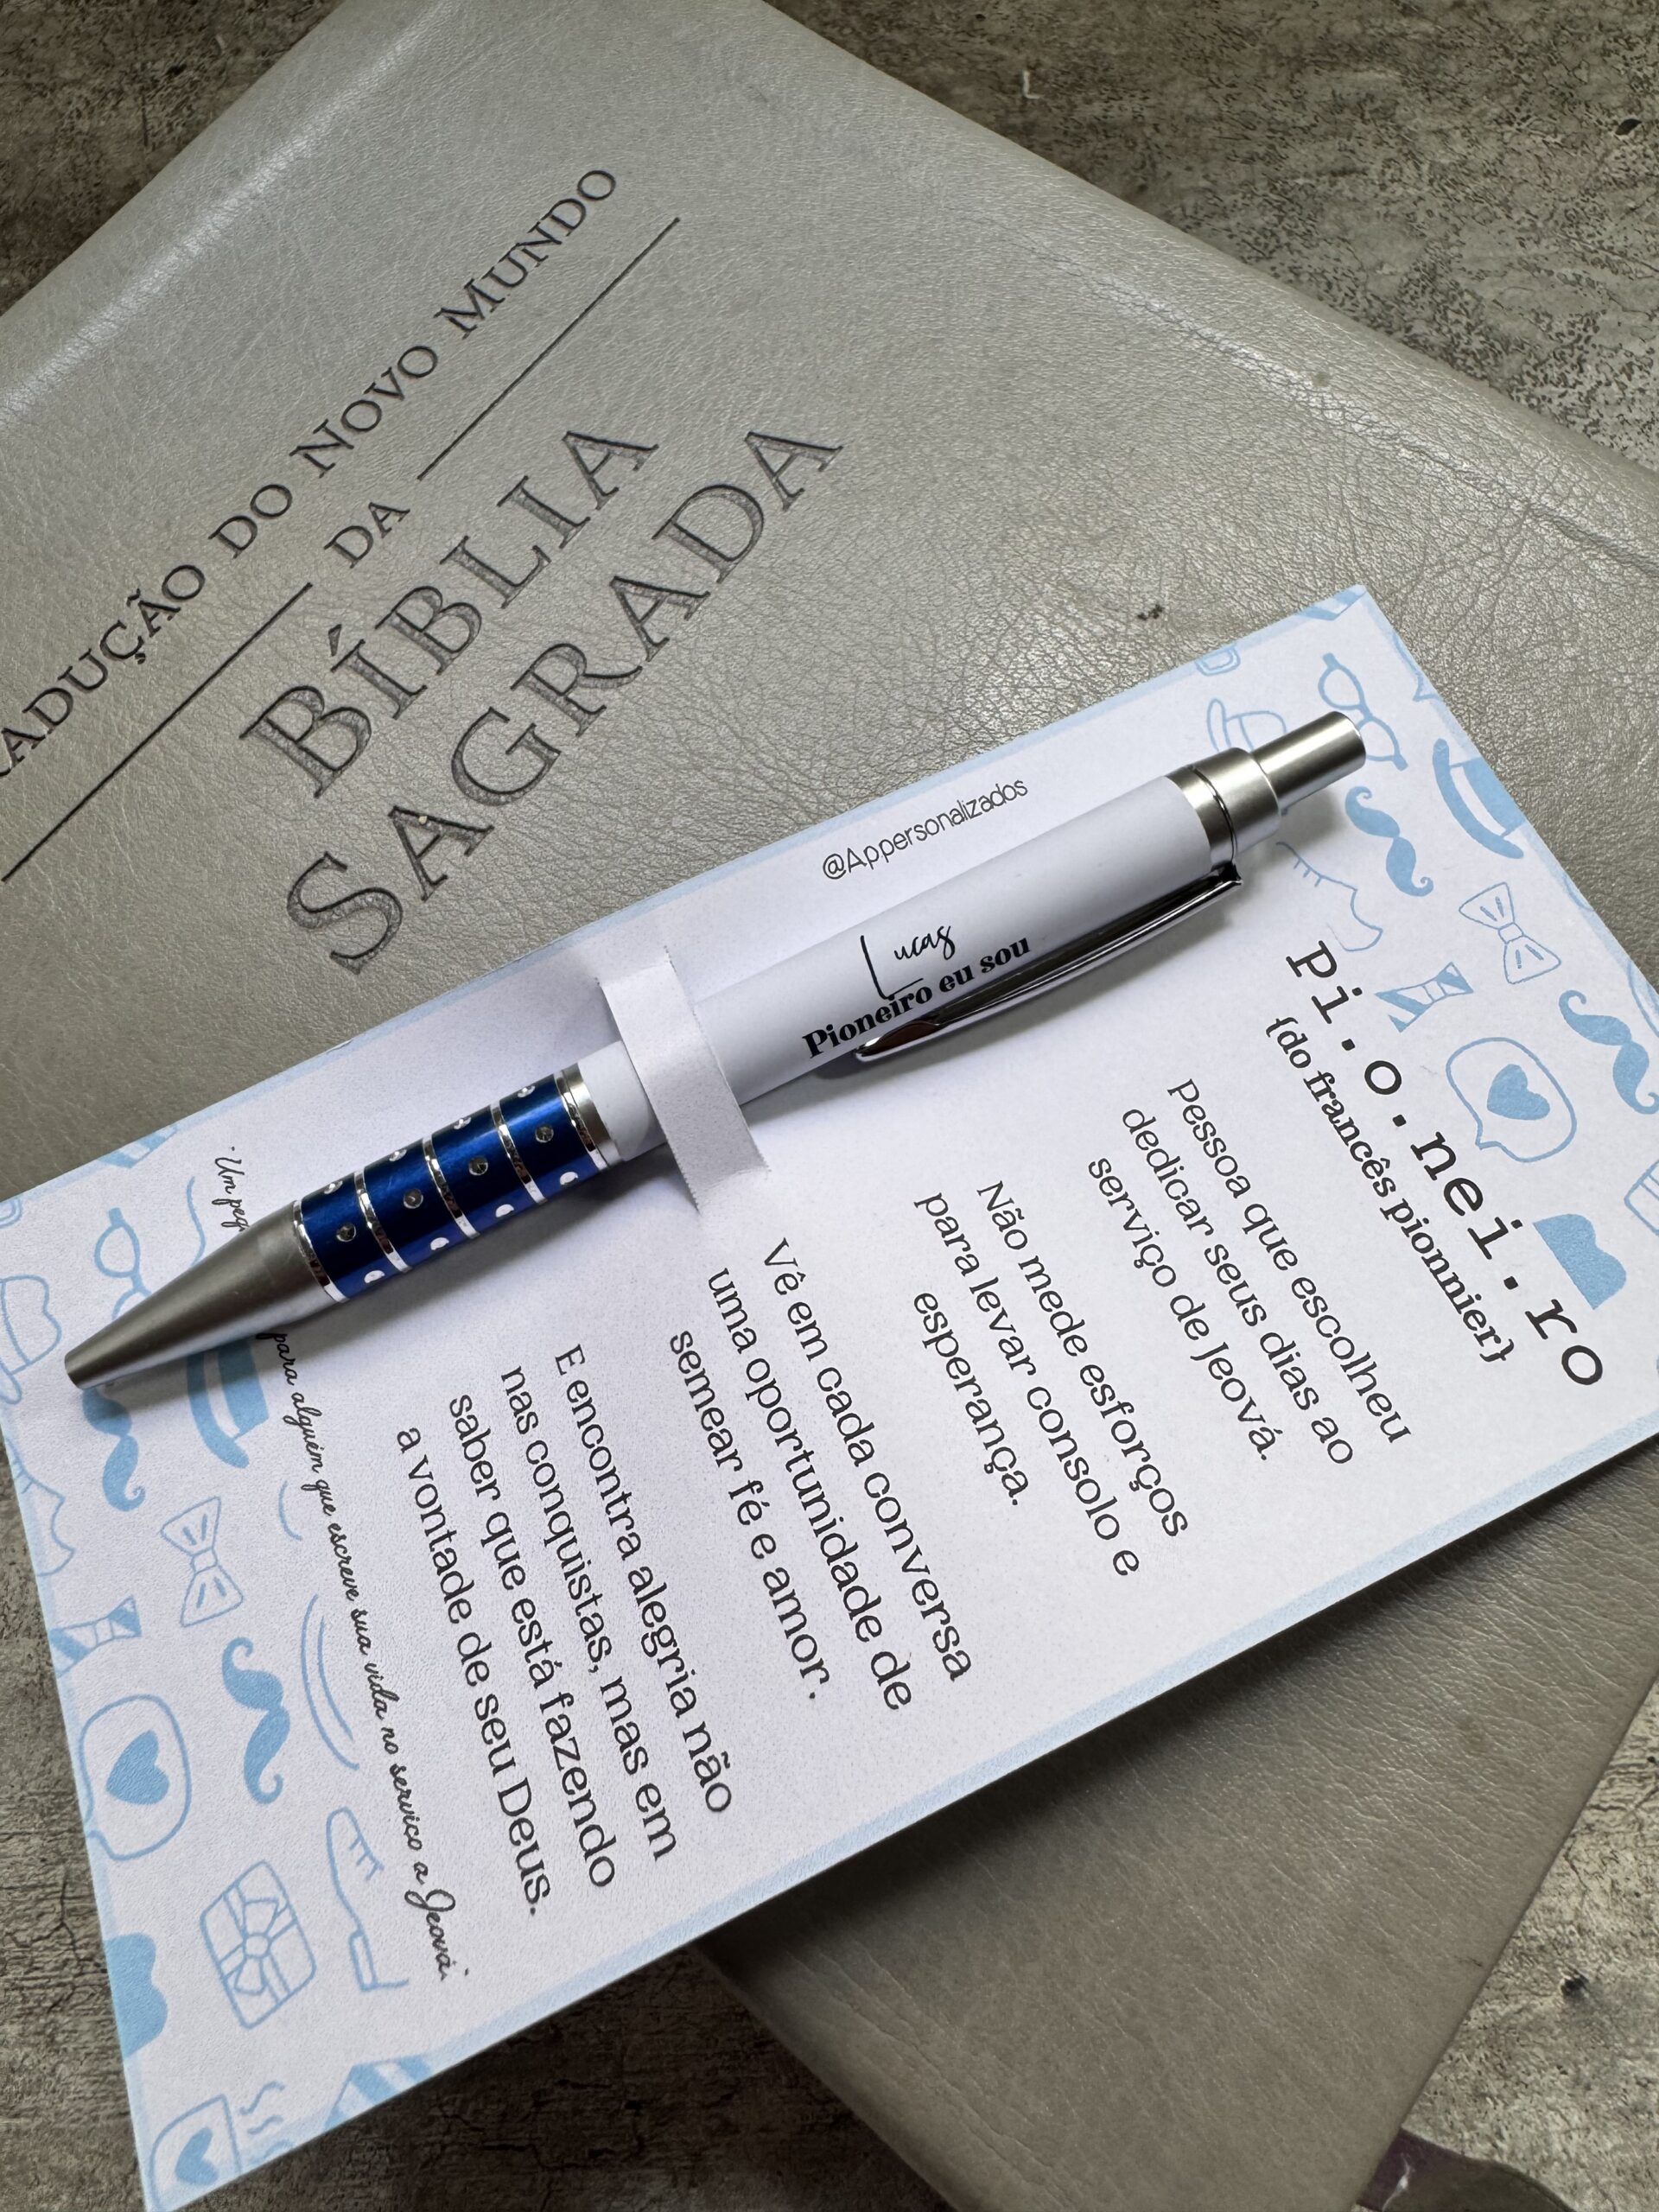 TRADUÇÃO DO NOVO MUNDO
DA
BÍBLIA
SAGRADA
@Appersonalizados
Lucas
Pioneiro eu sou
pi.o.nei.ro
{do francês pionnier}
Pessoa que escolheu
dedicar seus dias ao
serviço de Jeová.
Não mede esforços
para levar consolo e
esperança.
Vê em cada conversa
uma oportunidade de
semear fé e amor.
E encontra alegria não
nas conquistas, mas em
saber que está fazendo
a vontade de seu Deus.
"Um para alguém que escreve sua vida no serviço a Jeová."